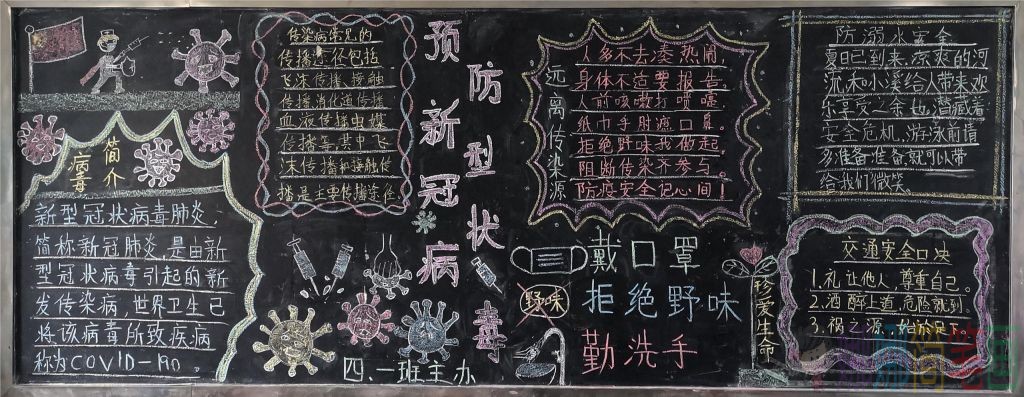 病毒
简介
新型冠状病毒肺炎
简称新冠肺炎,是由新
型冠状病毒引起的新
发传染病,世界卫生已
将该病毒所致疾病
称为COVID-190。
传染病常见的
传播途径包括
飞沫传播、接触
传播消化道传播
血液传播虫媒
传播等其中飞
沫传播和接触传
播是主要传播途径.
预防新型冠状病毒
四、一班主办
远离传染源
人多不去凑热闹,
身体不适要报告。
人前咳嗽打喷嚏
纸巾手肘遮口鼻。
拒绝野味我做起
阻断传染齐参与。
防疫安全记心间!
戴口罩
野味
拒绝野味
勤洗手
珍爱生命
防溺水安全
夏日已到来,凉爽的河
流.沐小溪给人带来欢
乐享受之余也潜藏着
安全危机,游泳前请
多准备准备,就可以带
给我们微笑
交通安全口决
1.礼让他人,尊重自己。
2.酒醉上道,危险就到。
3.祸之源,始於足下。